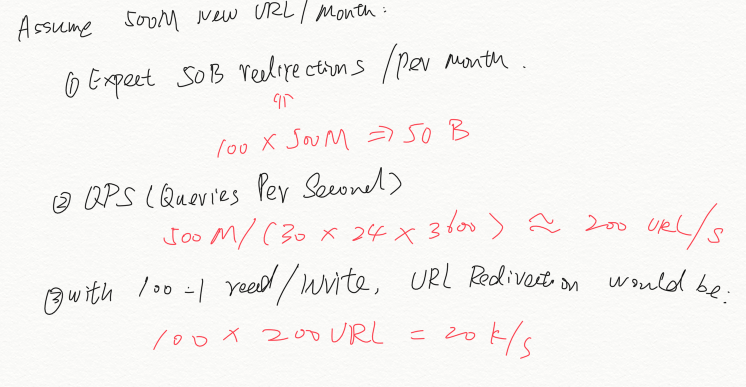 Assume 500M New URL/Month:
① Expect 50B redirections /per month.
100 × 500M => 50 B
② QPS (Queries Per Second)
500 M/(30 × 24 × 3600) ≈ 200 URL/s
③ with 100:1 read/write, URL Redirection would be:
100 × 200 URL = 20 k/s